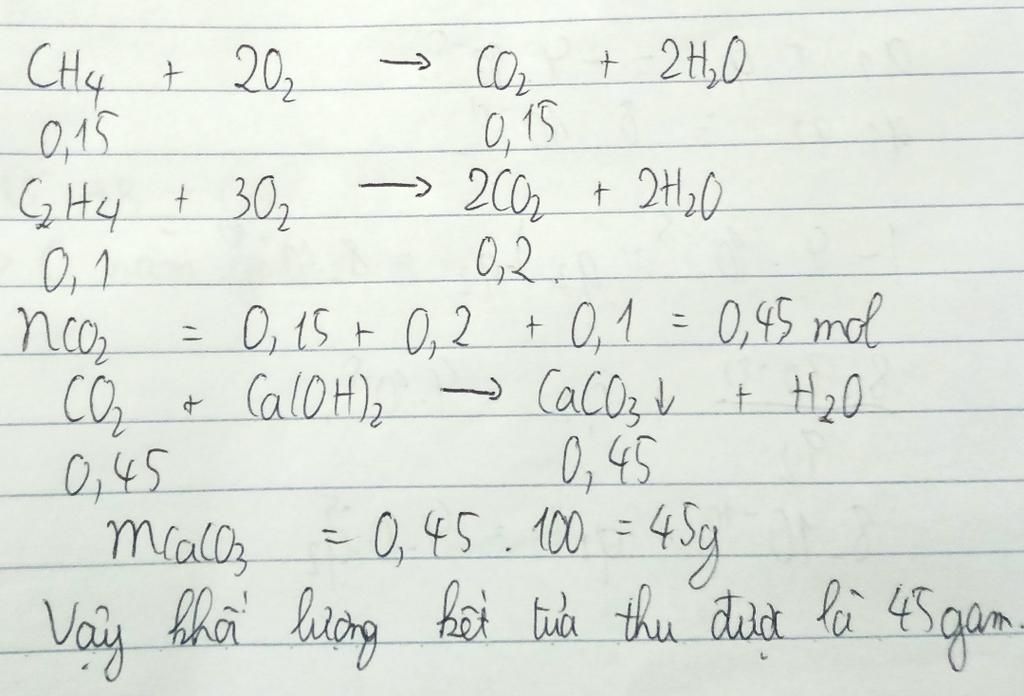 CH4 + 2O2 → CO2 + 2H2O
0,15 0,15
C2H4 + 3O2 → 2CO2 + 2H2O
0,1 0,2
nCO2 = 0,15 + 0,2 + 0,1 = 0,45 mol
CO2 + Ca(OH)2 → CaCO3↓ + H2O
0,45 0,45
mCaCO3 = 0,45 . 100 = 45g
Vậy khối lượng kết tủa thu được là 45gam.